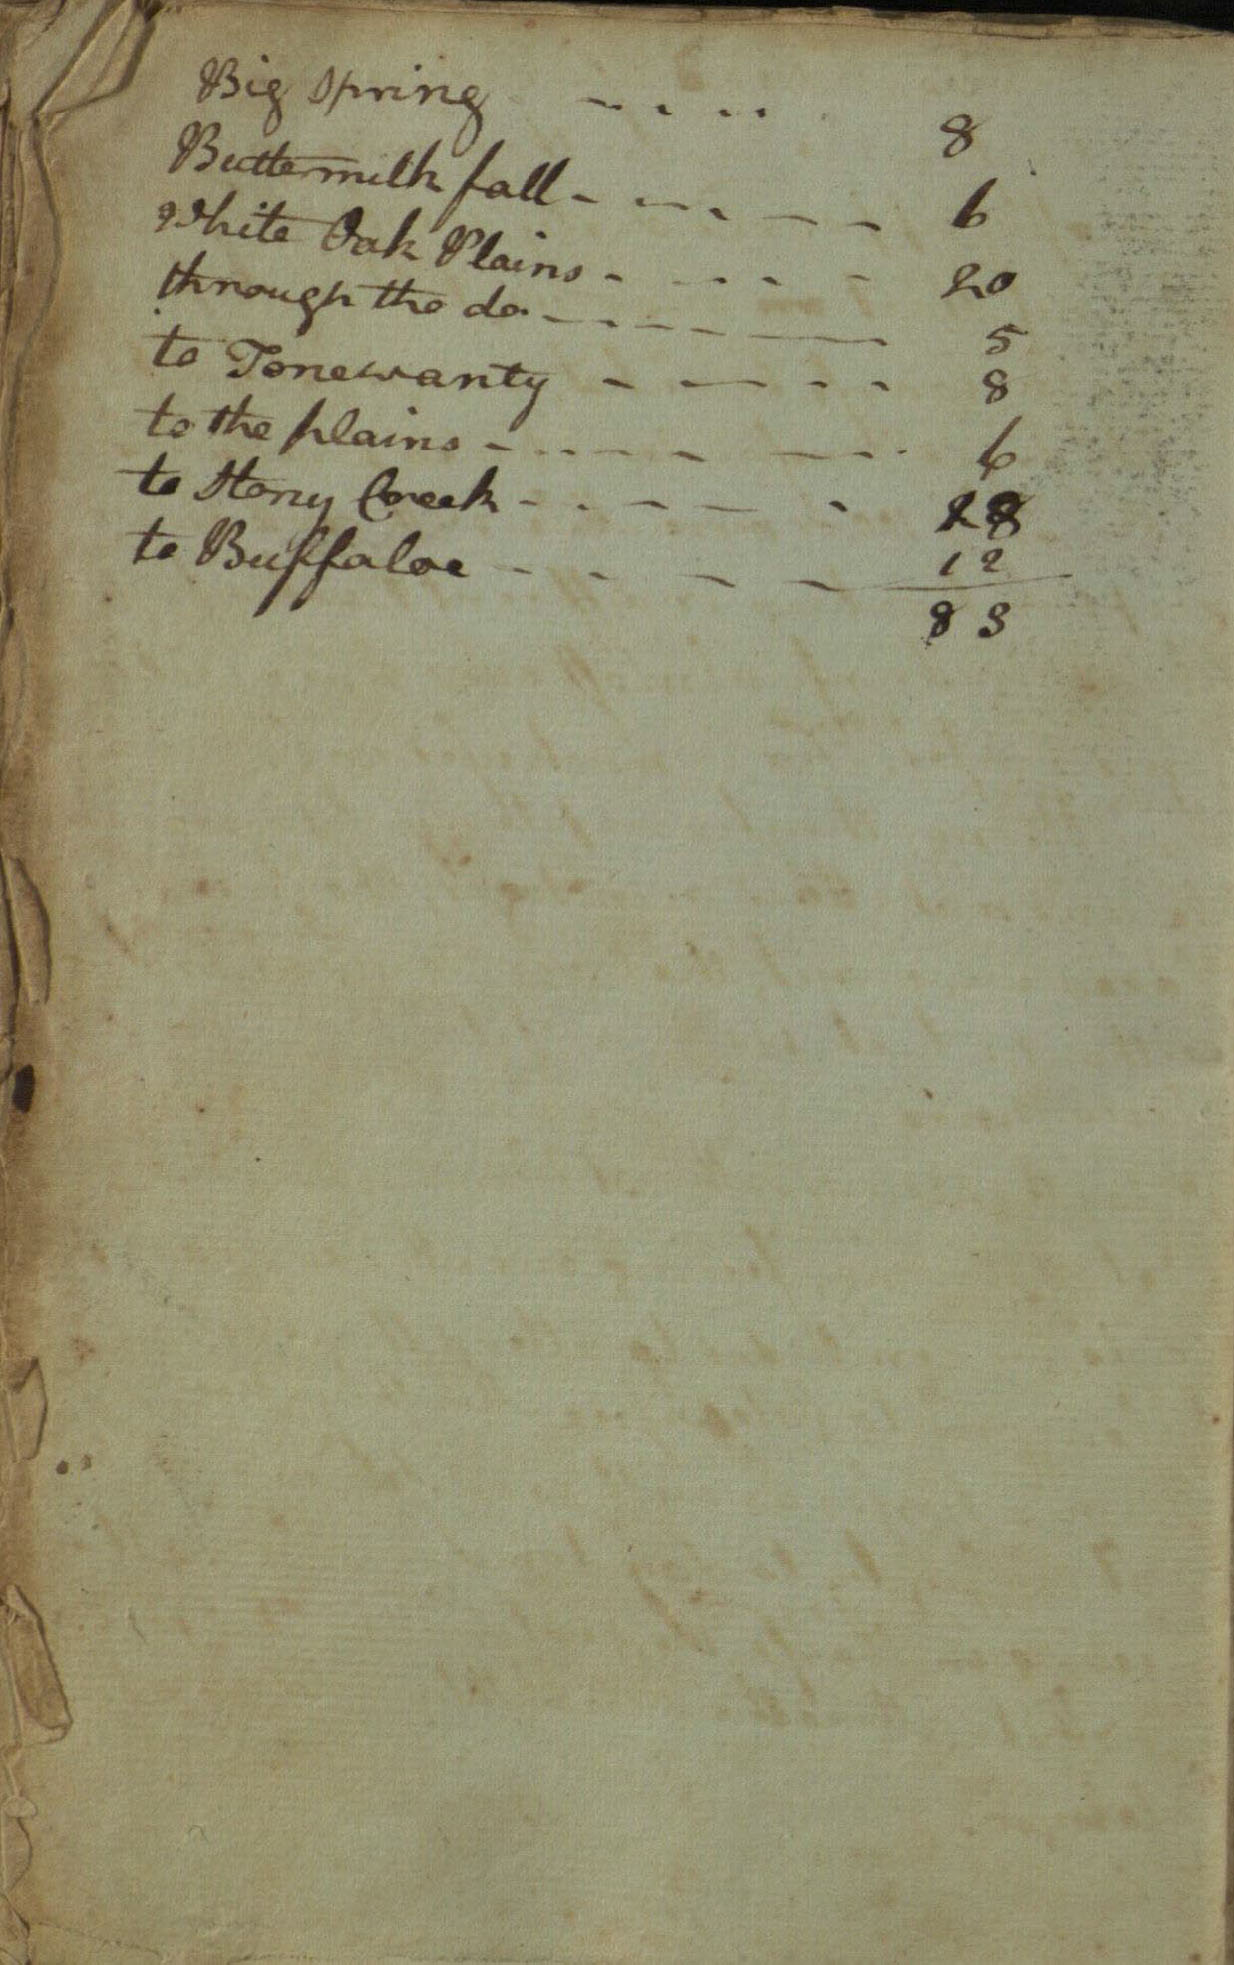 Big Spring - - - - 8
Buttermilk fall - - - - - - 6
White Oak Plains - - - - - 20
through the do. - - - - - - 5
to Tonewanty - - - - - 8
to the plains - - - - - - - 6
to Stony Creek - - - - - 18
to Buffaloe - - - - 12
83